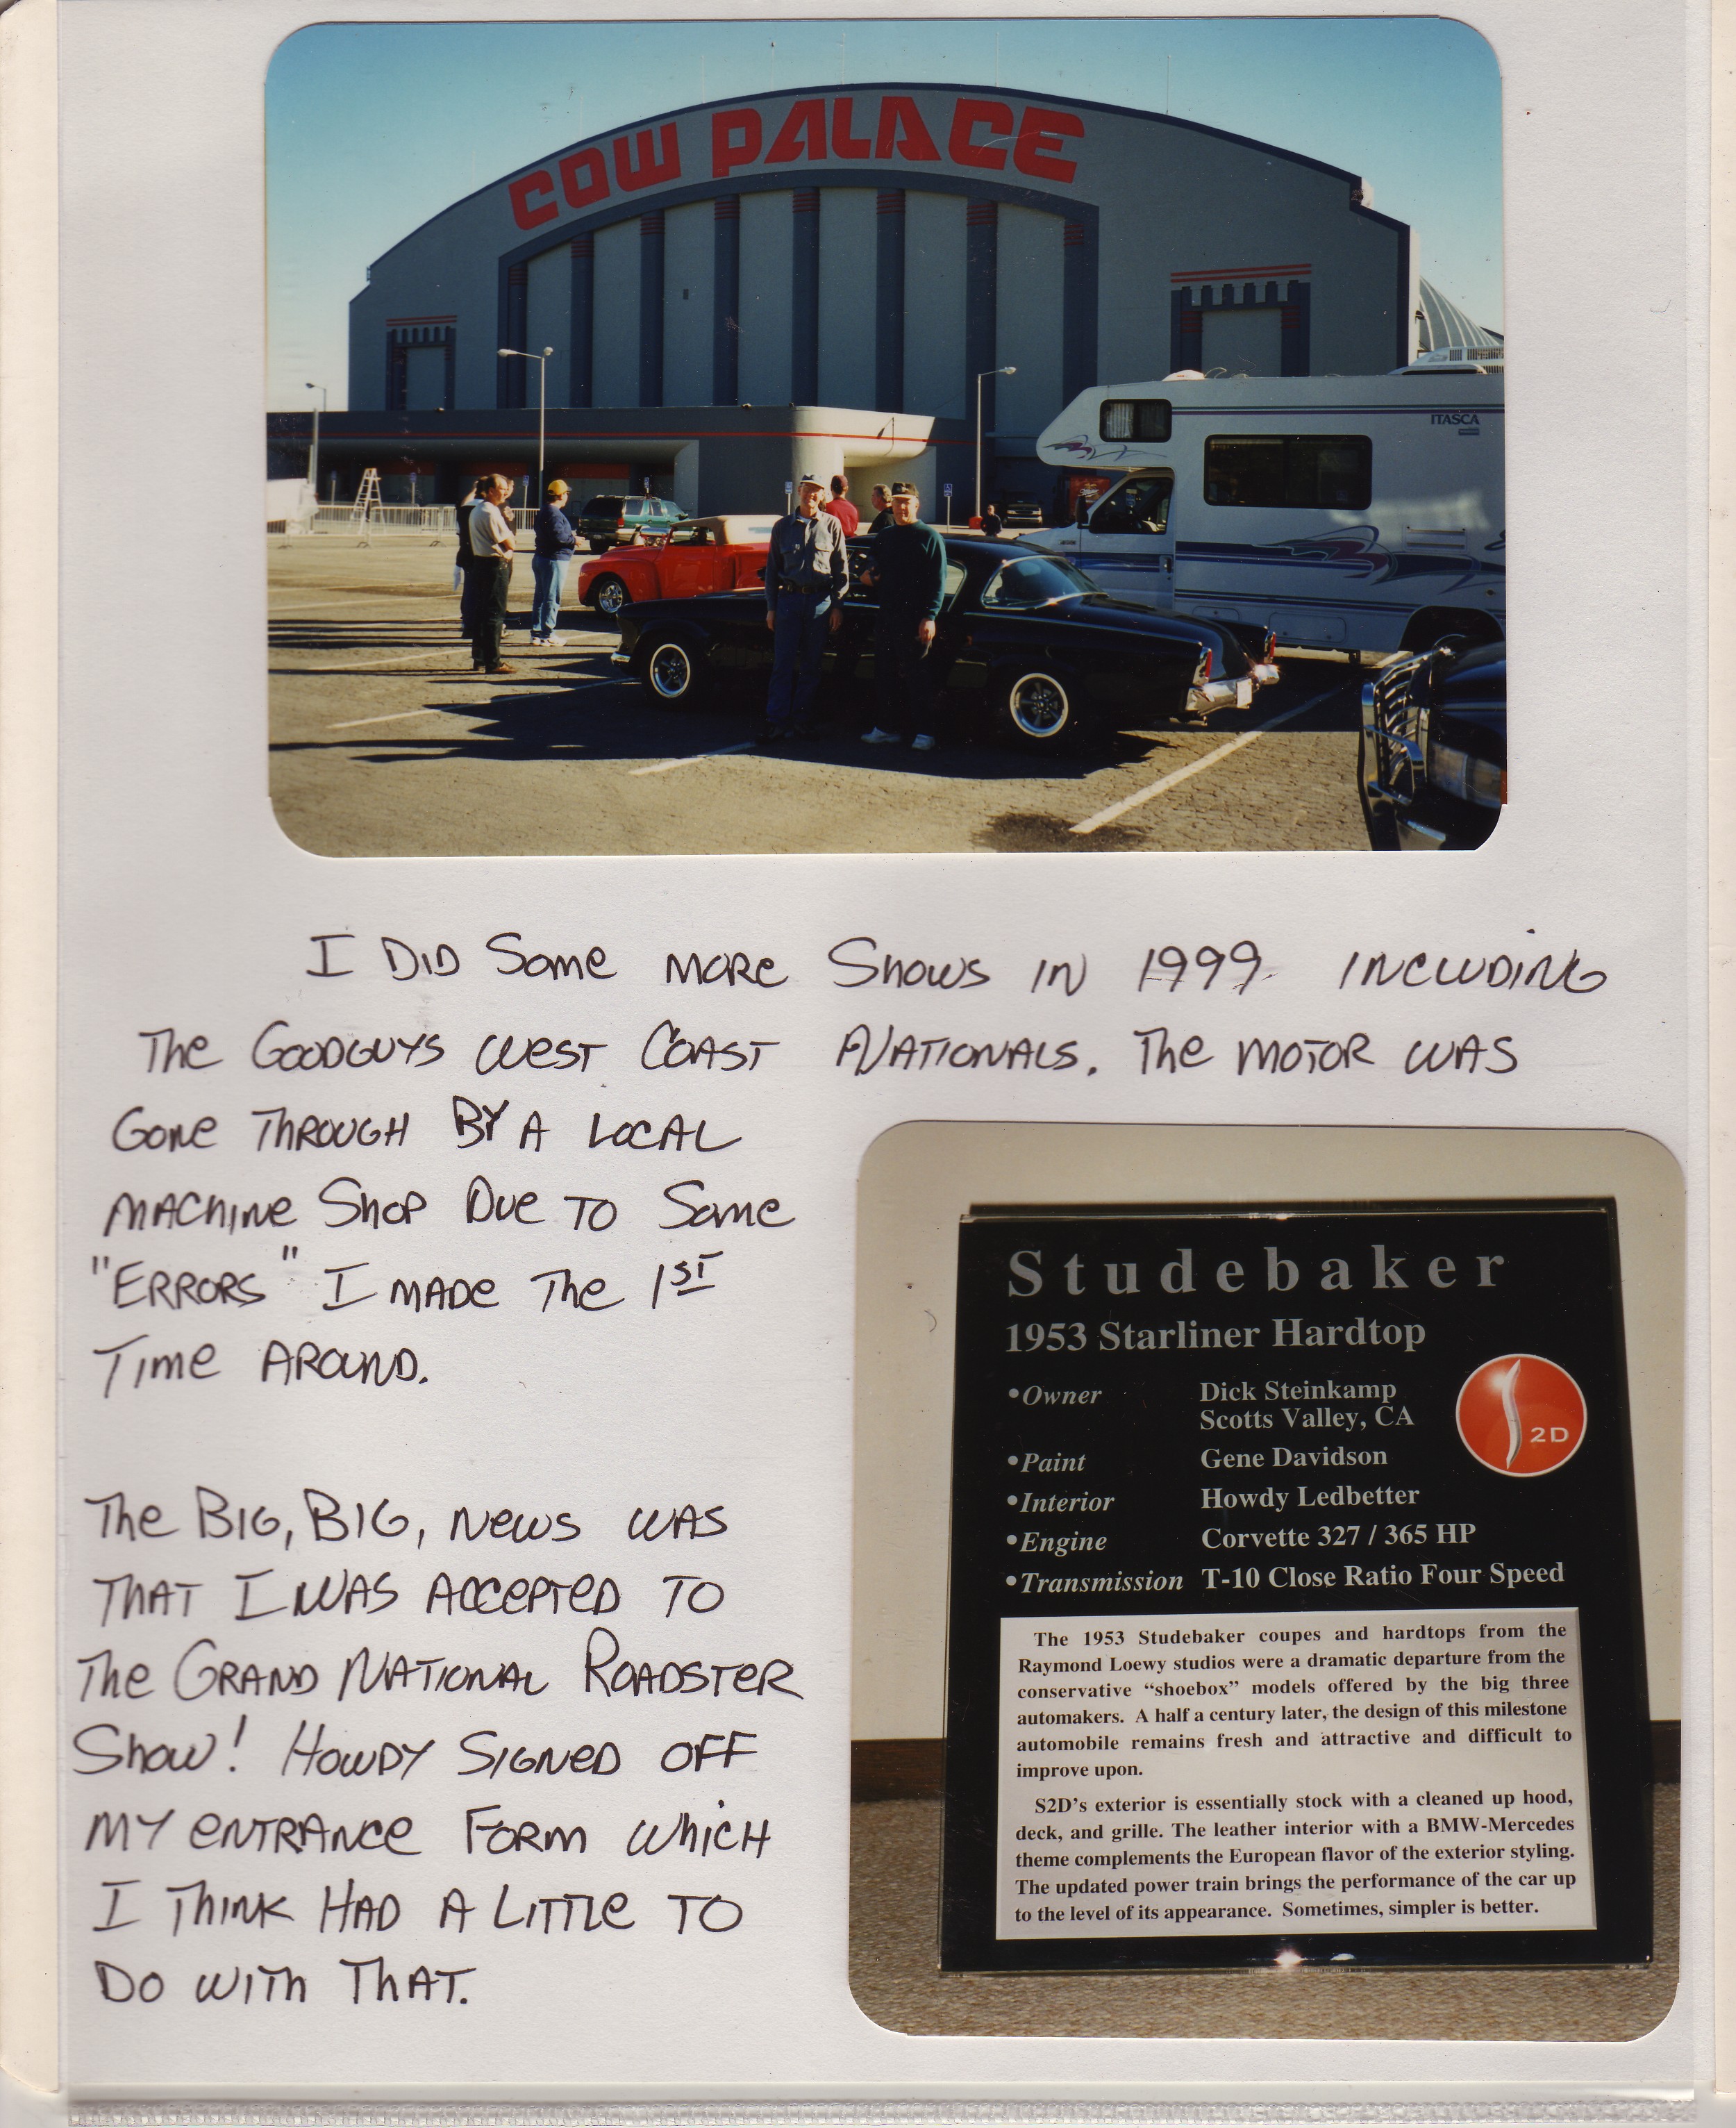 COW PALACE
ITASCA
I DID Some MORe Shows IN 1999 INCLUDING
The GOODGUYS WEST COAST NATIONALS. The MOTOR WAS
Gone ThROUGH BY A LOCAL
MACHINE Shop Due TO Some
"ERRORS" I MADe The 1ST
Time AROUND.
The BIG, BIG, News WAS
THAT I WAS ACCEPTED TO
The GRAND NATIONAL ROADSTER
Show! HOWDY SIGNED OFF
MY ENTRANCE FORM Which
I THINK HAD A LITTLE TO
DO WITH THAT.
Studebaker
1953 Starliner Hardtop
•Owner Dick Steinkamp
Scotts Valley, CA
2D
•Paint Gene Davidson
•Interior Howdy Ledbetter
•Engine Corvette 327 / 365 HP
•Transmission T-10 Close Ratio Four Speed
The 1953 Studebaker coupes and hardtops from the
Raymond Loewy studios were a dramatic departure from the
conservative “shoebox” models offered by the big three
automakers. A half a century later, the design of this milestone
automobile remains fresh and attractive and difficult to
improve upon.
S2D’s exterior is essentially stock with a cleaned up hood,
deck, and grille. The leather interior with a BMW-Mercedes
theme complements the European flavor of the exterior styling.
The updated power train brings the performance of the car up
to the level of its appearance. Sometimes, simpler is better.